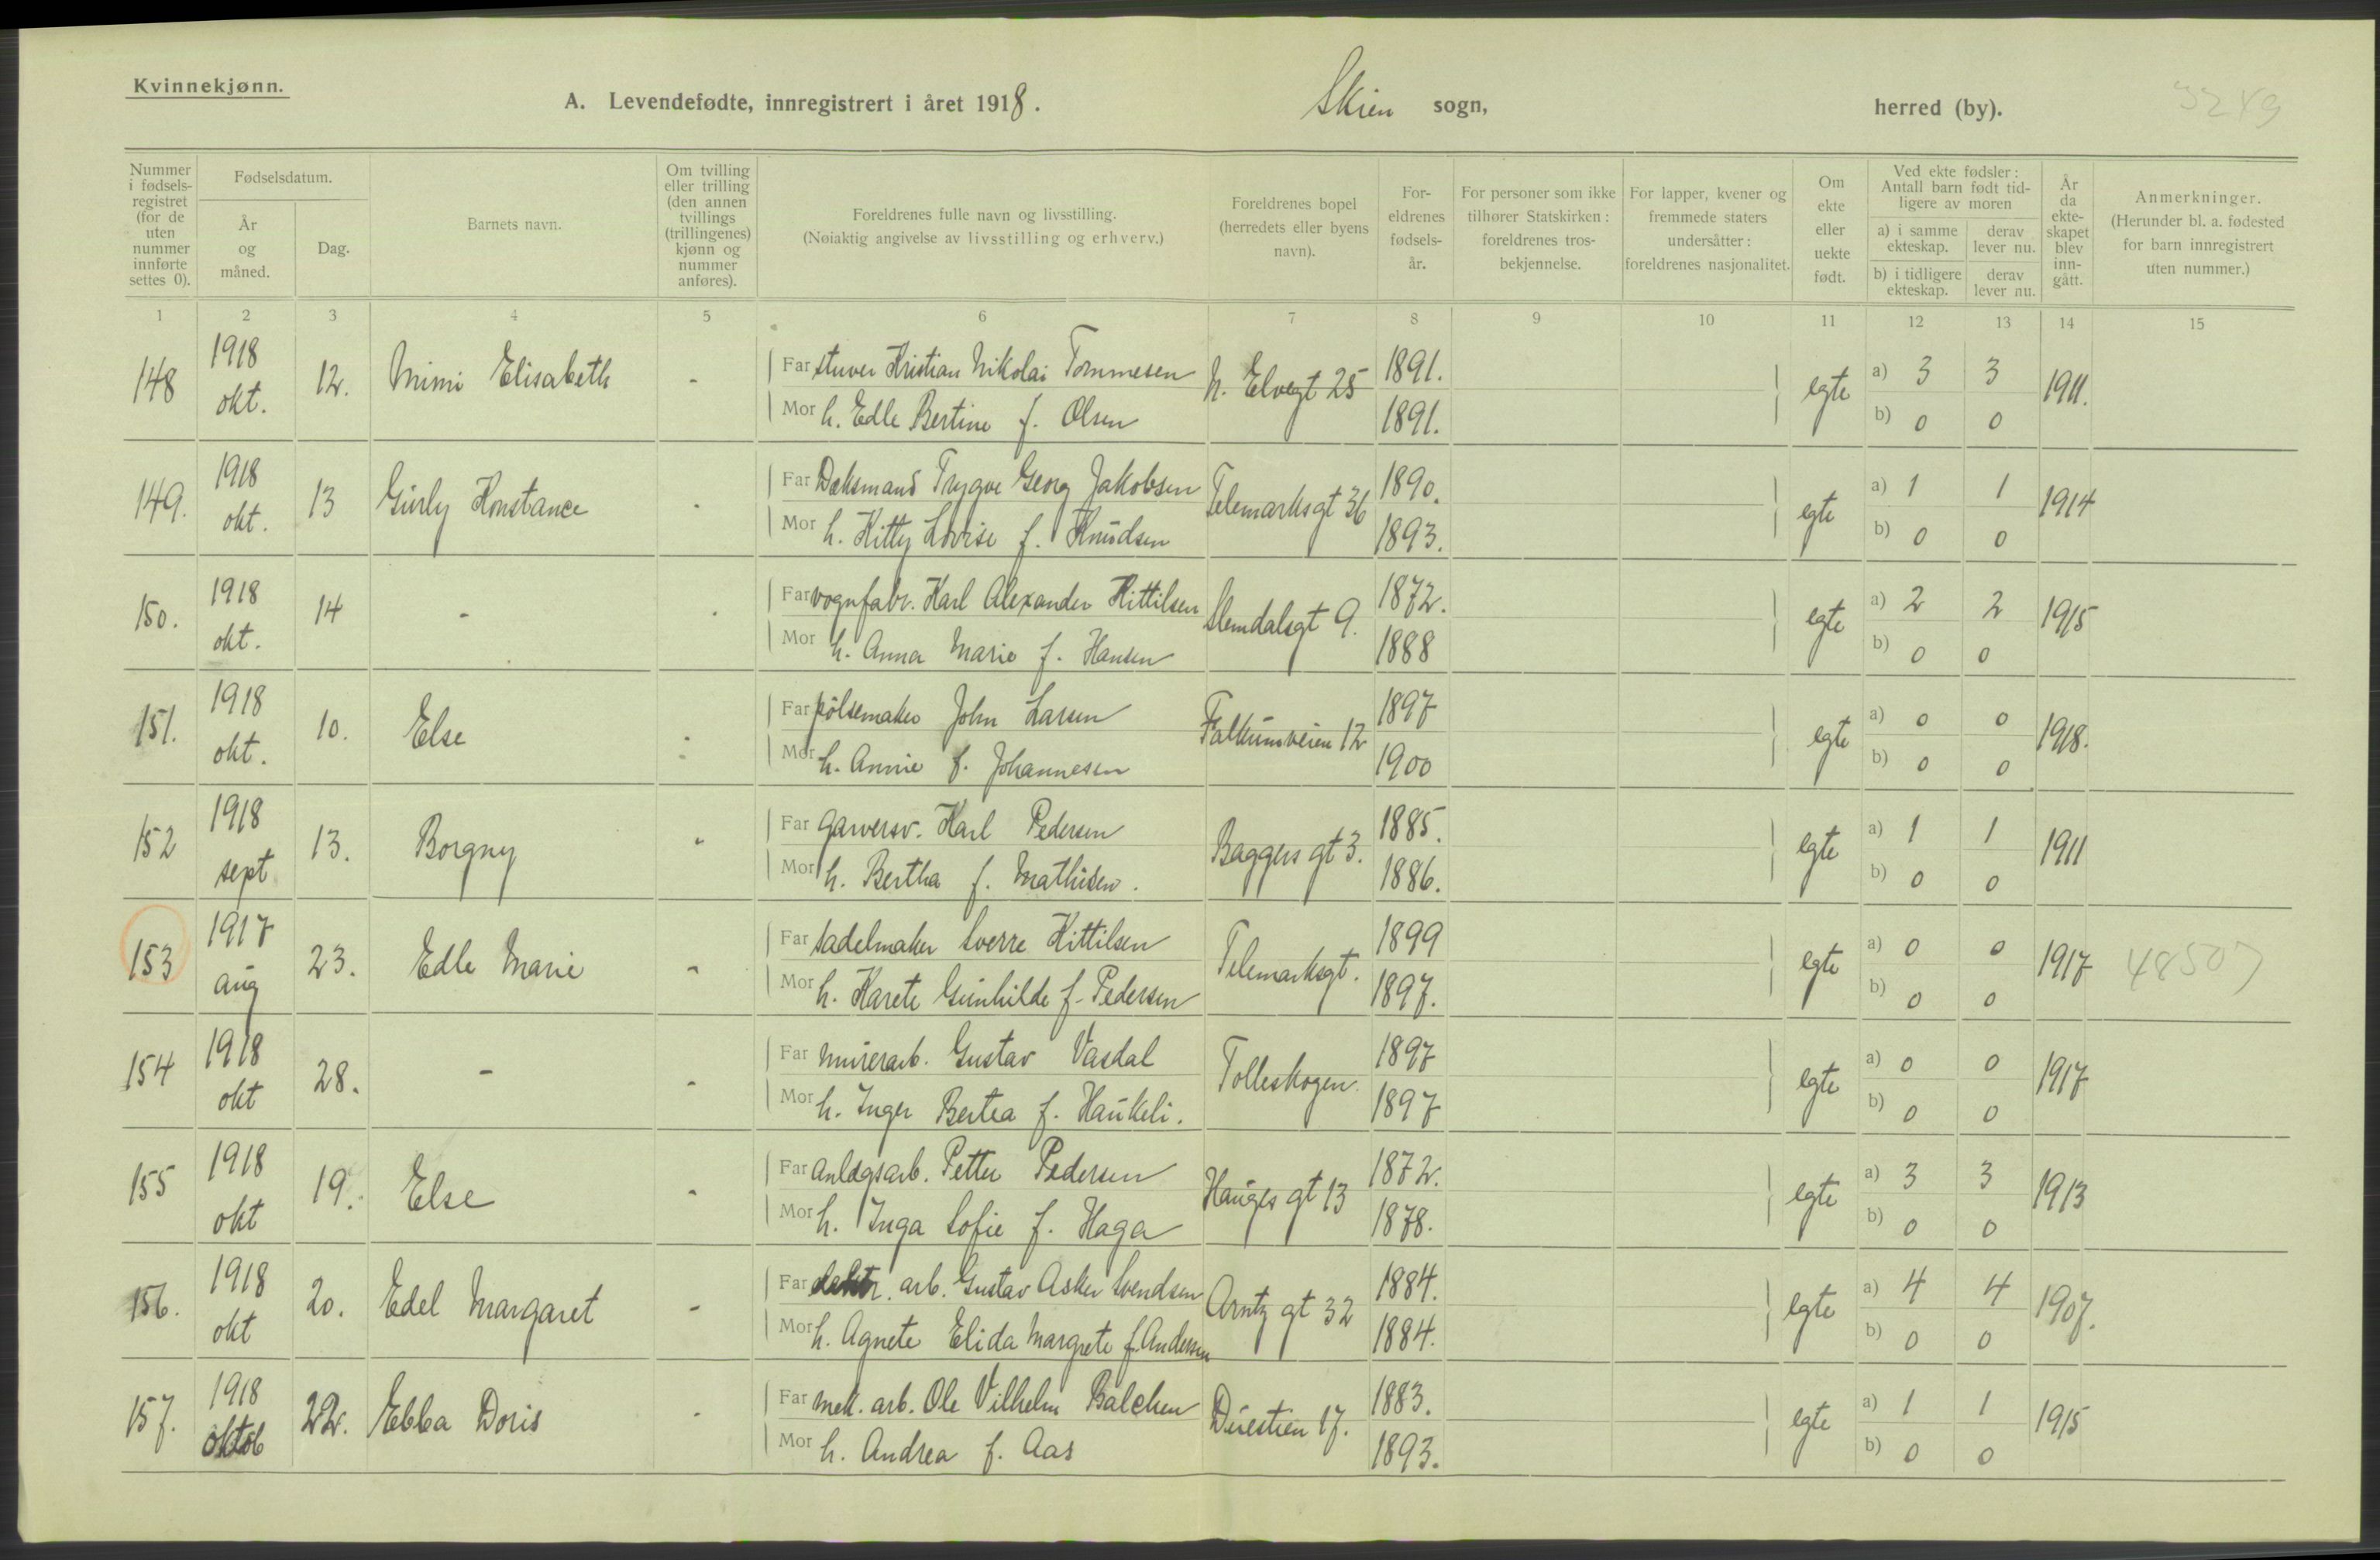 Kvinnekjønn.
A. Levendefødte, innregistrert i året 1918. Skien sogn, herred (by). 3249
Nummer i fødsels-registret (for de uten nummer innførte settes 0).
Fødselsdatum.
År og måned.
Dag.
Barnets navn.
Om tvilling eller trilling (den annen tvillings (trillingenes) kjønn og nummer anføres).
Foreldrenes fulle navn og livsstilling. (Nøiaktig angivelse av livsstilling og erhverv.)
Foreldrenes bopel (herredets eller byens navn).
For-eldrenes fødsels-år.
For personer som ikke tilhører Statskirken: foreldrenes tros-bekjennelse.
For lapper, kvener og fremmede staters undersåtter: foreldrenes nasjonalitet.
Om ekte eller uekte født.
Ved ekte fødsler: Antall barn født tid-ligere av moren
a) i samme ekteskap. derav lever nu.
b) i tidligere ekteskap. derav lever nu.
År da ekte-skapet blev inn-gått.
Anmerkninger. (Herunder bl. a. fødested for barn innregistrert uten nummer.)
1 2 3 4 5 6 7 8 9 10 11 12 13 14 15
148 1918 okt. 12. Mimi Elisabeth - Far stuver Kristian Nikolai Tommesen N. Elvegt 25 1891. egte a) 3 3 1911.
Mor h. Edle Bertine f. Olsen 1891. b) 0 0
149. 1918 okt. 13 Gurly Konstance - Far Dæksmand Trygve Georg Jakobsen Telemarksgt 36 1890. egte a) 1 1 1914
Mor h. Kitty Lovise f. Knudsen 1893. b) 0 0
150. 1918 okt. 14 - - Far vognfabr. Karl Alexander Kittilsen Slemdalsgt 9. 1872. egte a) 2 2 1915
Mor h. Anna Marie f. Hansen 1888 b) 0 0
151. 1918 okt. 10. Else - Far pølsemaker John Larsen Falkumveien 12 1897 egte a) 0 0 1918.
Mor h. Annie f. Johannesen 1900 b) 0 0
152 1918 sept 13. Borgny - Far garversv. Karl Pedersen Baggers gt 3. 1885. egte a) 1 1 1911
Mor h. Bertha f. Mathisen. 1886. b) 0 0
153 1917 aug 23. Edle Marie - Far sadelmaker Sverre Kittilsen Telemarksgt. 1899 egte a) 0 0 1917 48507
Mor h. Karete Gunhilde f. Pedersen 1897. b) 0 0
154 1918 okt 28. - - Far murerarb. Gustav Vasdal Tolleskogen. 1897 egte a) 0 0 1917
Mor h. Inger Bertea f. Haukeli. 1897 b) 0 0
155 1918 okt 19. Else - Far anlægsarb. Petter Pedersen Hauges gt 13 1872. egte a) 3 3 1913
Mor h. Inga Sofie f. Haga 1878. b) 0 0
156. 1918 okt 20. Edel Margaret - Far arb. Gustav Asker Svendsen Arntz gt 32 1884. egte a) 4 4 1907.
Mor h. Agnete Elida Margrete f. Andersen 1884. b) 0 0
157. 1918 oktob 22. Ebba Doris - Far mek. arb. Ole Vilhelm Balchen Duestien 17. 1883. egte a) 1 1 1915
Mor h. Andrea f. Aas 1893. b) 0 0